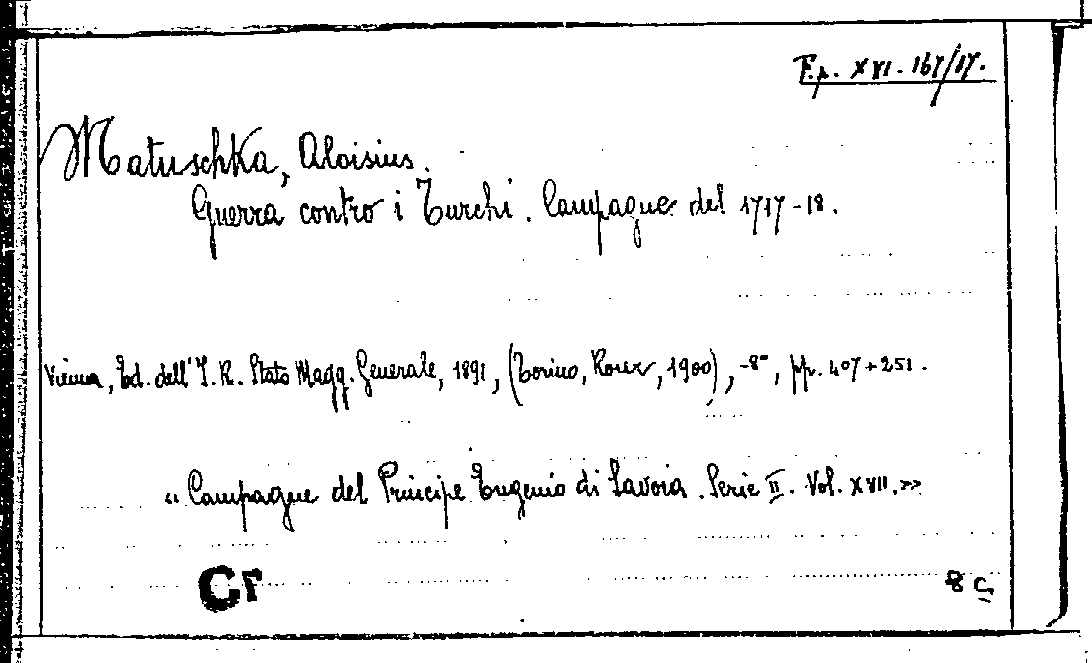 F.p. XVI. 167/17.
Matuschka, Aloisius.
Guerra contro i Turchi. Campagne del 1717-18.
Vienna, Ed. dell'I. R. Stato Magg. Generale, 1891, (Torino, Roux, 1900), -8°, pp. 407+251.
"Campagne del Principe Eugenio di Savoia. Serie II. Vol. XVII.»
Cf
8 C